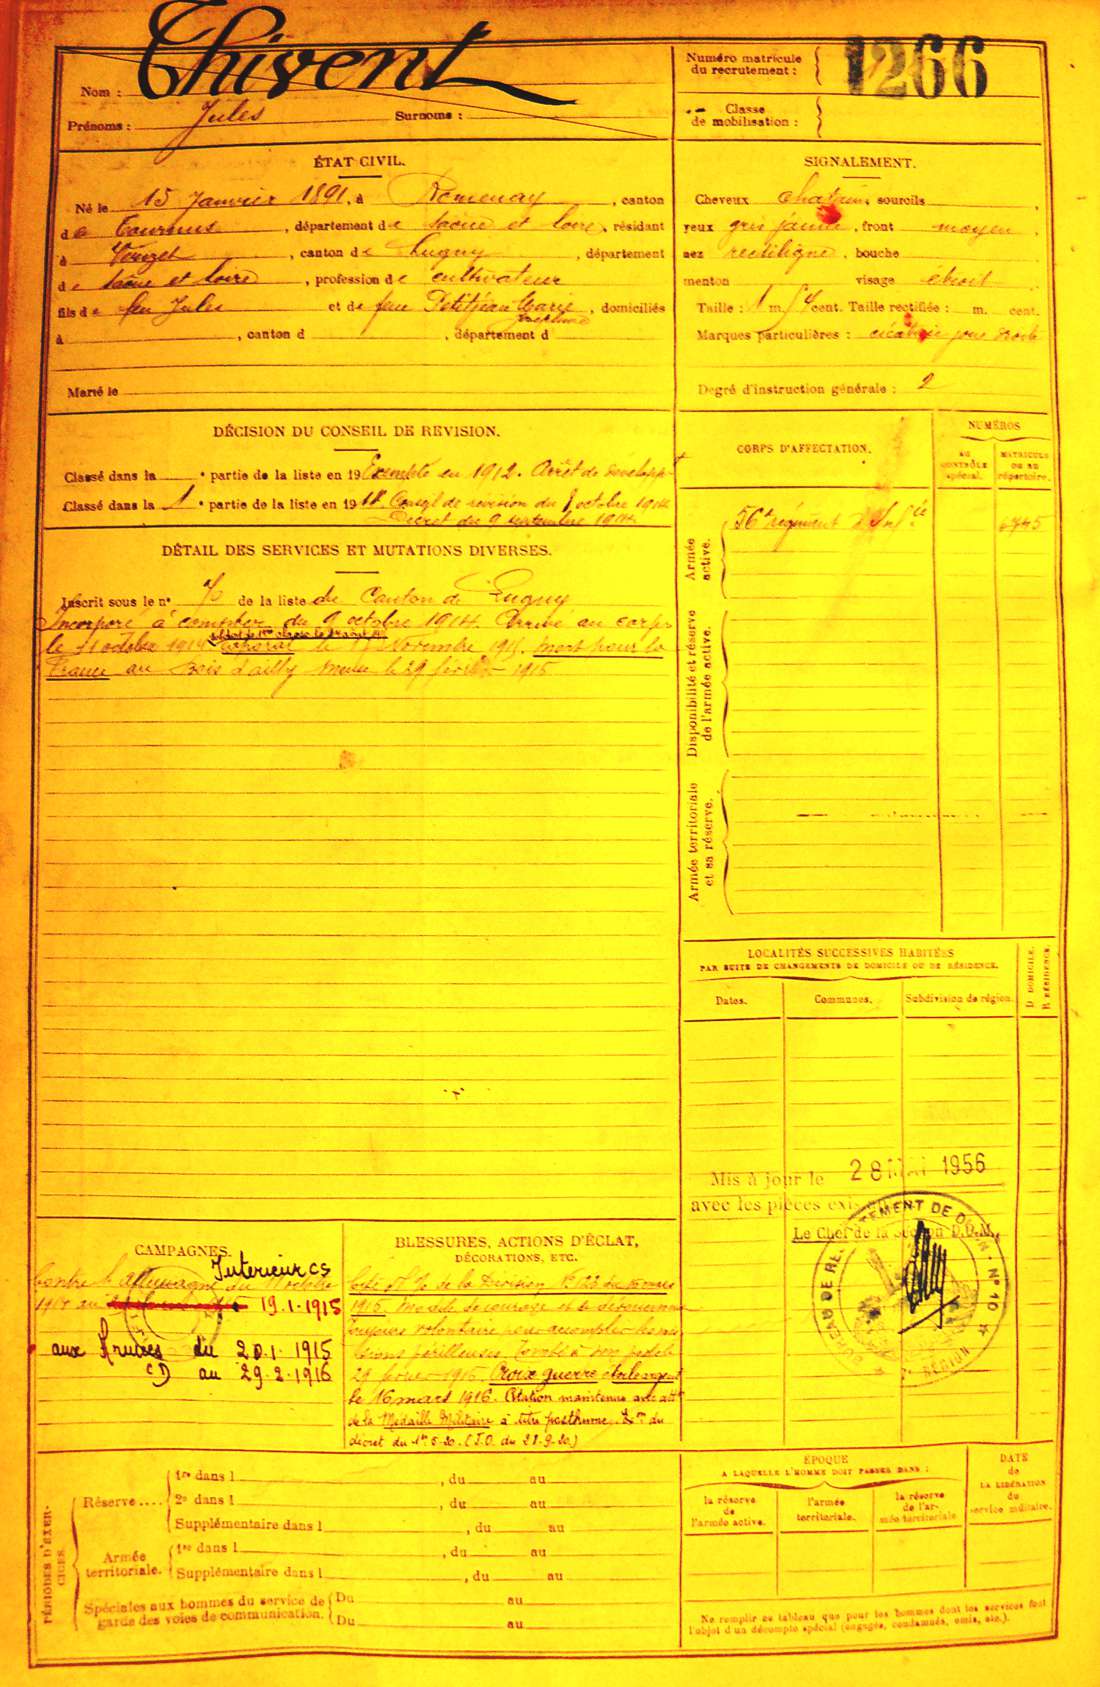 Nom : Thivent
Prénoms : Jules Surnoms :
Numéro matricule du recrutement : 1266
Classe de mobilisation :
ÉTAT CIVIL.
Né le 15 Janvier 1891, à Romenay, canton
de Tournus, département de Saône et Loire, résidant
à , canton de Lugny, département
de Saône et Loire, profession de cultivateur
fils de feu Jules et de feue Petitjean Marie , domiciliés
à , canton d , département d
Marié le
SIGNALEMENT.
Cheveux chatain, sourcils
yeux gris jaune, front moyen,
nez rectiligne, bouche
menton visage étroit
Taille : 1 m. 54 cent. Taille rectifiée : m. cent.
Marques particulières : cicatrice joue droite
Degré d'instruction générale : 2
DÉCISION DU CONSEIL DE REVISION.
Classé dans la partie de la liste en 19 Exempté en 1912. Arrêt de développt
Classé dans la 1e partie de la liste en 1914 Conseil de révision du octobre 1914
Décret du 9 septembre 1914
CORPS D'AFFECTATION.
NUMÉROS
AU CONTRÔLE spécial.
MATRICULE OU AU répertoire.
Armée active.
56e régiment d'Infie 6745
Disponibilité et réserve de l'armée active.
Armée territoriale et sa réserve.
DÉTAIL DES SERVICES ET MUTATIONS DIVERSES.
Inscrit sous le n° 70 de la liste du Canton de Lugny
Incorporé à compter du 9 octobre 1914. Arrivé au corps
le 11 octobre 1914 Caporal le Novembre 1915. Mort pour la
France au Bois d'ailly Meuse le 29 février 1915
LOCALITÉS SUCCESSIVES HABITÉES
PAR SUITE DE CHANGEMENTS DE DOMICILE OU DE RÉSIDENCE.
Dates. Communes. Subdivision de région. D. DOMICILE. R. RÉSIDENCE.
Mis à jour le 28 MAI 1956
avec les pièces exis
Le Chef de la Section D.D.M.,
BUREAU DE RECRUTEMENT DE DIJON - N° 10
RÉGION
CAMPAGNES.
Intérieur CS
Contre l'Allemagne du 11 octobre
1914 au 19.1.1915
aux Armées du 20.1.1915
CD au 29.2.1916
BLESSURES, ACTIONS D'ÉCLAT,
DÉCORATIONS, ETC.
Cité de la Division N° 123 du 15 mars
1916. Modèle de courage et de dévouement
toujours volontaire pour accomplir les mis
sions périlleuses. Tombé à son poste le
29 février 1916. Croix guerre étoile argent
le 16 mars 1916. Citation maintenue avec atton
de la Médaille Militaire à titre posthume. du
décret du 1er 5-20. (J.O. du 21.9.20.)
PÉRIODES D'EXERCICES.
Réserve.... 1re dans l , du au
2e dans l , du au
Supplémentaire dans l , du au
Armée territoriale. 1re dans l , du au
Supplémentaire dans l , du au
Spéciales aux hommes du service de garde des voies de communication. Du au
Du au
ÉPOQUE
A LAQUELLE L'HOMME DOIT PASSER DANS :
la réserve de l'armée active.
l'armée territoriale.
la réserve de l'armée territoriale
DATE de LA LIBÉRATION du service militaire.
Ne remplir ce tableau que pour les hommes dont les services font
l'objet d'un décompte spécial (engagés, condamnés, omis, etc.).